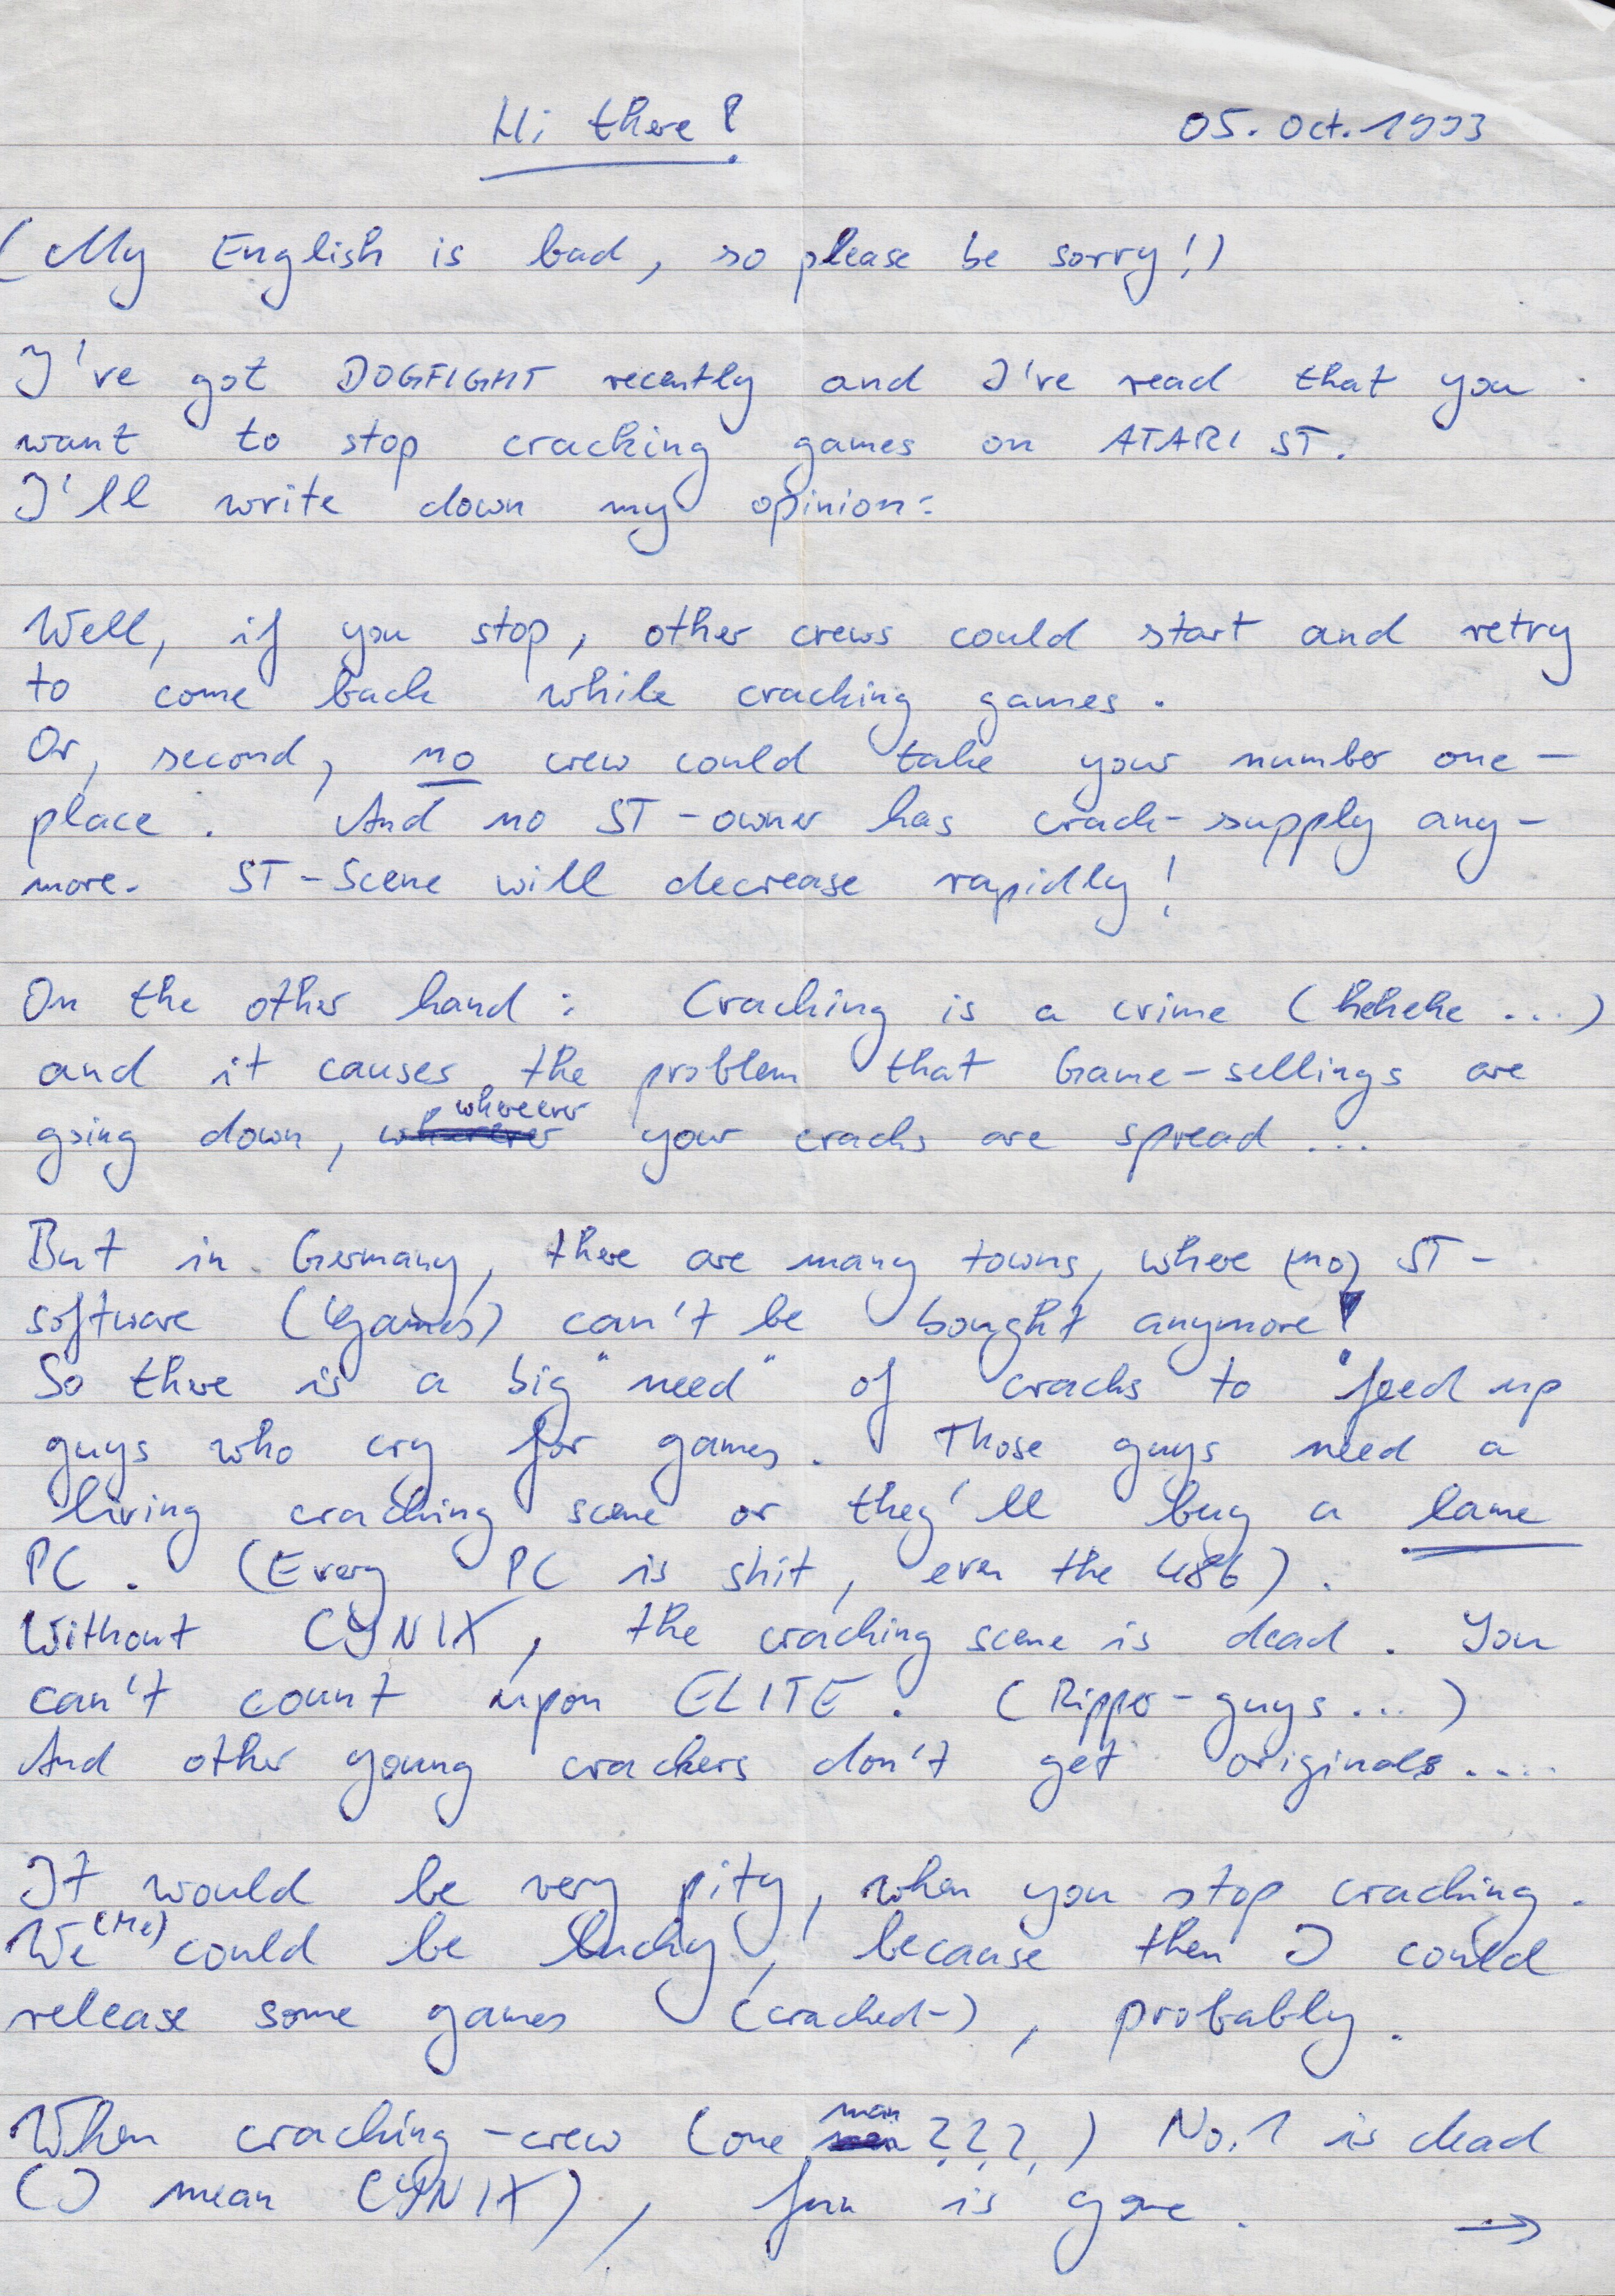 Hi there!
05. Oct. 1993
(My English is bad, so please be sorry!)
I've got DOGFIGHT recently and I've read that you
want to stop cracking games on ATARI ST.
I'll write down my opinion:
Well, if you stop, other crews could start and retry
to come back while cracking games.
Or, second, no crew could take your number one-
place. And no ST-owner has crack-supply any-
more. ST-Scene will decrease rapidly!
On the other hand: Cracking is a crime (hehehe ...)
and it causes the problem that Game-sellings are
going down, whereever your cracks are spread ...
But in Germany, there are many towns, where (no) ST-
software (Games) can't be bought anymore!
So there is a big "need" of cracks to "feed up
guys who cry for games. Those guys need a
living cracking scene or they'll buy a lame
PC. (Every PC is shit, even the 486).
Without CYNIX, the cracking scene is dead. You
can't count upon ELITE. (Ripper-guys...)
And other young crackers don't get originals....
It would be very pity, when you stop cracking.
We (Me) could be lucky, because then I could
release some games (cracked-), probably.
When cracking-crew (one man ???) No.1 is dead
(I mean CYNIX), fun is gone. →